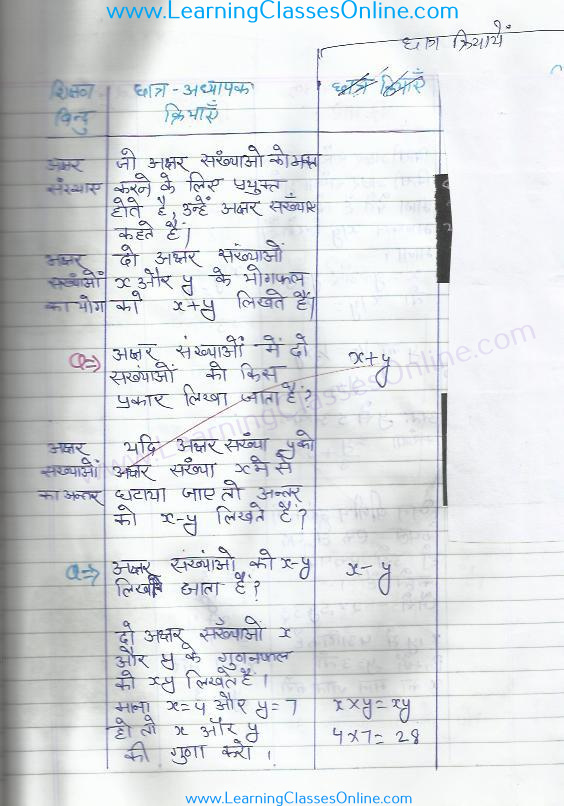 www.LearningClassesOnline.com
छात्र क्रियायें
शिक्षण छात्र-अध्यापक छात्र क्रियाएँ
बिन्दु क्रियाएँ
अक्षर जो अक्षर संख्याओ को
संख्याए करने के लिए प्रयुक्त
होते है, उन्हें अक्षर संख्याए
कहते हैं।
अक्षर दो अक्षर संख्याओं
संख्याओं x और y के योगफल
का योग को x+y लिखते हैं।
Q⇒ अक्षर संख्याओं में दो x+y
संख्याओं को किस
प्रकार लिखा जाता है?
अक्षर यदि अक्षर संख्या y को
संख्याओं अक्षर संख्या x मे से
का अन्तर घटाया जाए तो अन्तर
को x-y लिखते हैं?
Q⇒ अक्षर संख्यांओ को x-y x-y
लिखा जाता हैं?
दो अक्षर संख्याओ x
और y के गुणनफल
को xy लिखते हैं।
माना x=4 और y=7 x×y=xy
हो तो x और y 4×7=28
की गुणा करो।
www.LearningClassesOnline.com
www.LearningClassesOnline.com